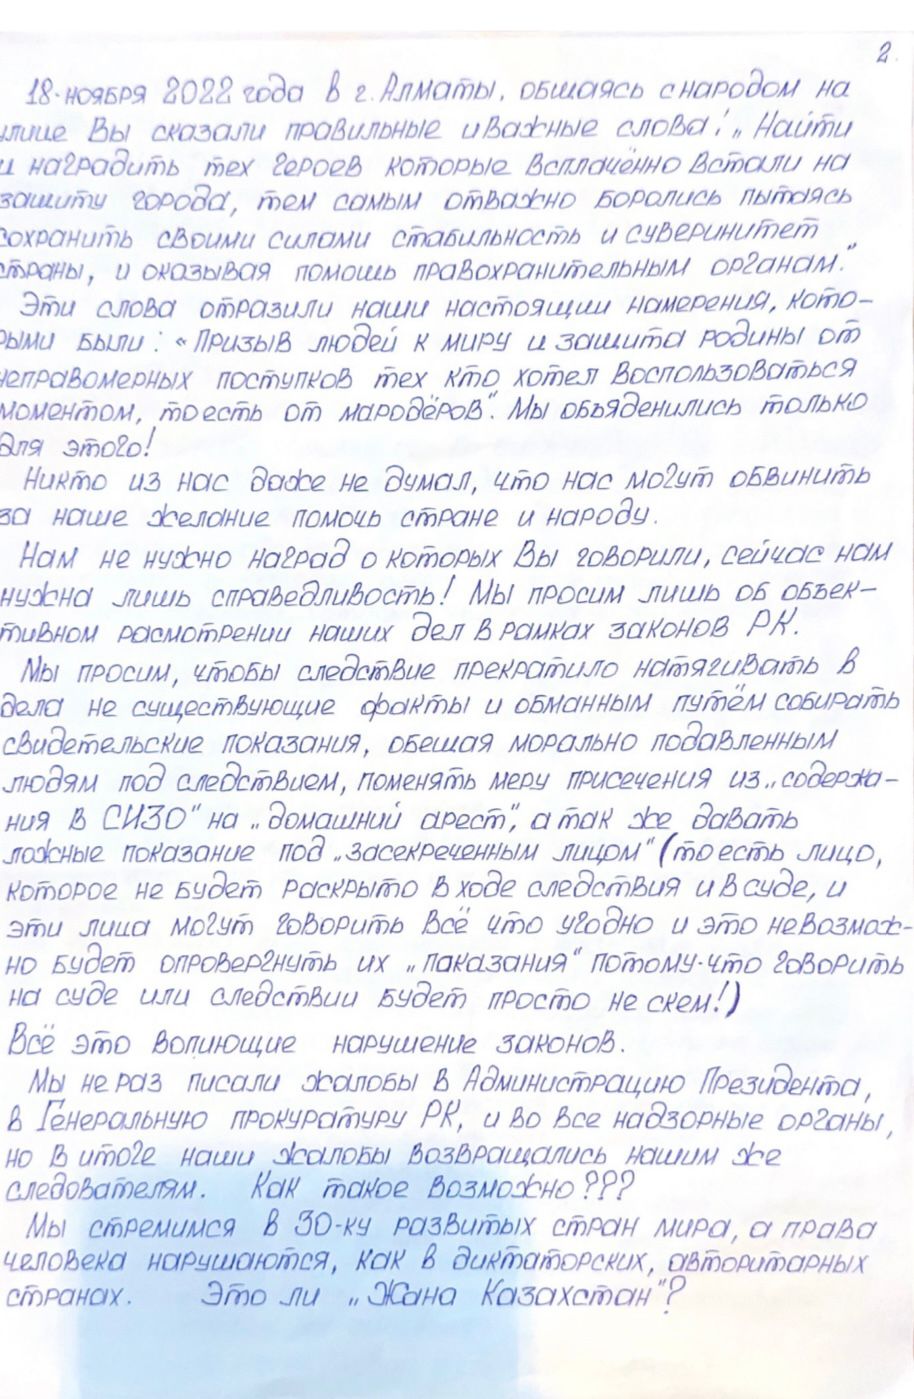 2.
18-ноября 2022 года в г. Алматы, общаясь с народом на
улице Вы сказали правильные и важные слова: „Найти
и наградить тех героев которые всплачённо встали на
защиту города, тем самым отважно боролись пытаясь
сохранить своими силами стабильность и суверинитет
страны, и оказывая помощь правохранительным органам."
Эти слова отразили наши настоящии намерения, кото-
рыми были: „Призыв людей к миру и защита родины от
неправомерных поступков тех кто хотел воспользоваться
моментом, то есть от мародёров". Мы объяденились только
для этого!
Никто из нас даже не думал, что нас могут обвинить
за наше желание помочь стране и народу.
Нам не нужно наград о которых Вы говорили, сейчас нам
нужна лишь справедливость! Мы просим лишь об объек-
тивном расмотрении наших дел в рамках законов РК.
Мы просим, чтобы следствие прекратило натягивать в
дела не существующие факты и обманным путём собирать
свидетельские показания, обещая морально подавленным
людям под следствием, поменять меру присечения из „содержа-
ния в СИЗО" на „домашний арест", а так же давать
ложные показание под „засекреченным лицом" (то есть лицо,
которое не будет раскрыто в ходе следствия и в суде, и
эти лица могут говорить всё что угодно и это невозмож-
но будет опровергнуть их „паказания" потому-что говорить
на суде или следствии будет просто не скем!)
Всё это вопиющие нарушение законов.
Мы не раз писали жалобы в Администрацию Президента,
в Генеральную прокуратуру РК, и во все надзорные органы,
но в итоге наши жалобы возвращались нашим же
следователям. Как такое возможно???
Мы стремимся в 30-ку развитых стран мира, а права
человека нарушаются, как в диктаторских, авторитарных
странах. Это ли „Жана Казахстан"?